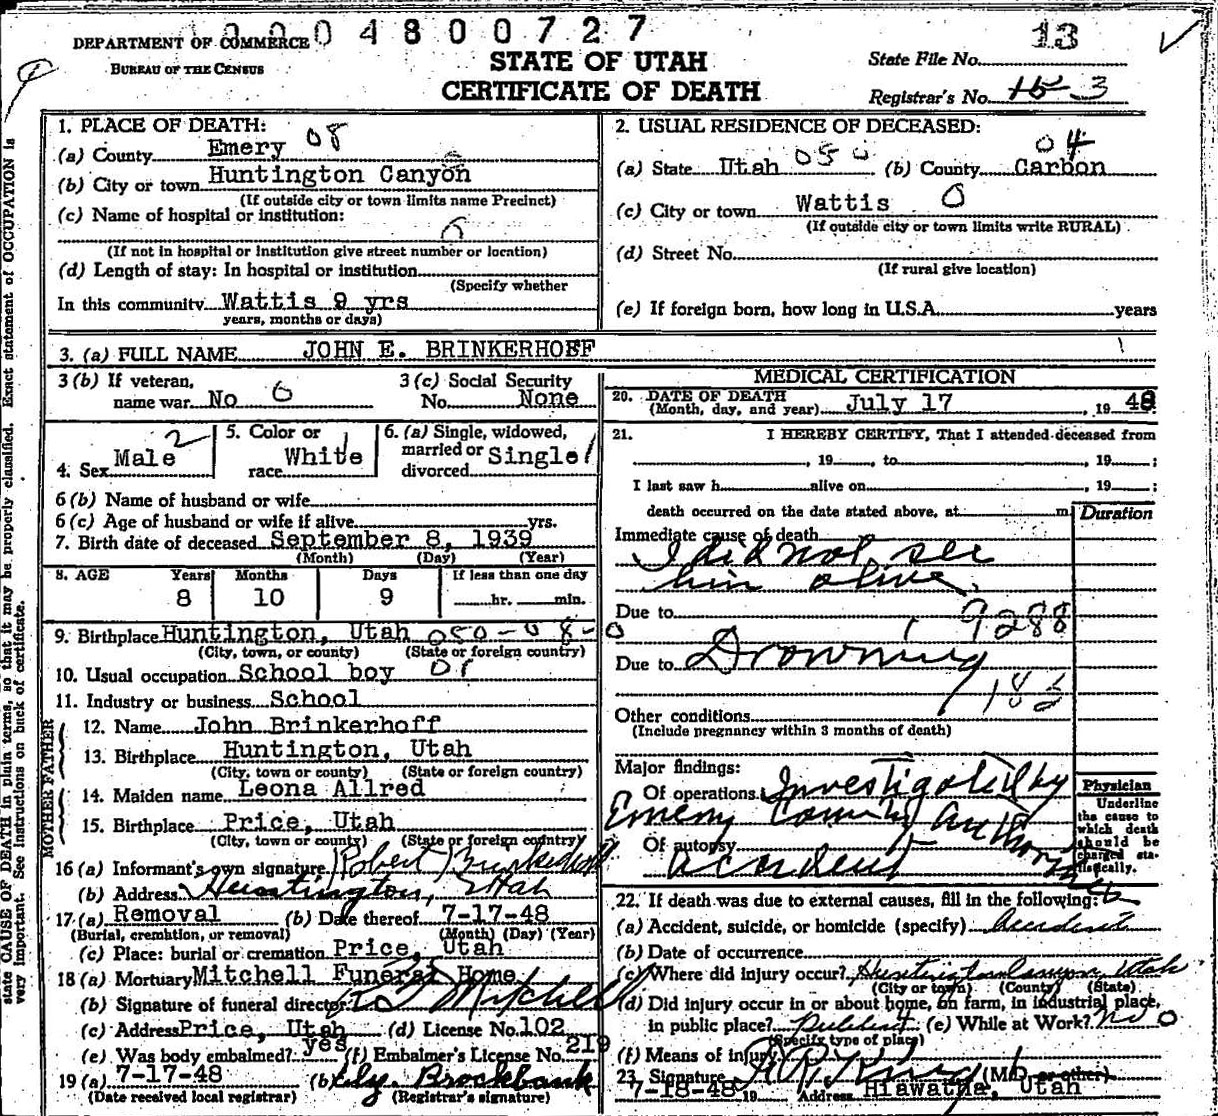 0004800727
DEPARTMENT OF COMMERCE
BUREAU OF THE CENSUS
STATE OF UTAH
CERTIFICATE OF DEATH
State File No. 13
Registrar's No. 3
1. PLACE OF DEATH: 08
(a) County Emery
(b) City or town Huntington Canyon
(If outside city or town limits name Precinct)
(c) Name of hospital or institution:
(If not in hospital or institution give street number or location)
(d) Length of stay: In hospital or institution
(Specify whether
In this community Wattis 9 yrs
years, months or days)
2. USUAL RESIDENCE OF DECEASED: 04
(a) State Utah 050 (b) County Carbon
(c) City or town Wattis 0
(If outside city or town limits write RURAL)
(d) Street No.
(If rural give location)
(e) If foreign born, how long in U.S.A. years
3. (a) FULL NAME JOHN E. BRINKERHOFF
3 (b) If veteran,
name war No 0
3 (c) Social Security
No. None
4. Sex Male 2
5. Color or
race White 1
6. (a) Single, widowed,
married or
divorced Single 1
6 (b) Name of husband or wife
6 (c) Age of husband or wife if alive yrs.
7. Birth date of deceased September 8, 1939
(Month) (Day) (Year)
8. AGE Years Months Days If less than one day
8 10 9 hr. min.
9. Birthplace Huntington, Utah 050-08-0
(City, town, or county) (State or foreign country)
10. Usual occupation School boy
11. Industry or business School
FATHER
12. Name John Brinkerhoff
13. Birthplace Huntington, Utah
(City, town or county) (State or foreign country)
MOTHER
14. Maiden name Leona Allred
15. Birthplace Price, Utah
(City, town or county) (State or foreign country)
16 (a) Informant's own signature Robert Brinkerhoff
(b) Address Huntington, Utah
17 (a) Removal (b) Date thereof 7-17-48
(Burial, cremation, or removal) (Month) (Day) (Year)
(c) Place: burial or cremation Price, Utah
18 (a) Mortuary Mitchell Funeral Home
(b) Signature of funeral director Mitchell
(c) Address Price, Utah (d) License No. 102
(e) Was body embalmed? yes (f) Embalmer's License No. 219
19 (a) 7-17-48 (b) Brockbank
(Date received local registrar) (Registrar's signature)
MEDICAL CERTIFICATION
20. DATE OF DEATH
(Month, day, and year) July 17, 1948
21. I HEREBY CERTIFY, That I attended deceased from
, 19 , to , 19 ;
I last saw h alive on , 19 ;
death occurred on the date stated above, at m.
Duration
Immediate cause of death
I did not see
him alive.
Due to 9288
Due to Drowning
183
Other conditions
(Include pregnancy within 3 months of death)
Major findings:
Of operations Investigated by
Emery County Authorities
Of autopsy
accident
Physician
Underline
the cause to
which death
should be
charged sta-
tistically.
22. If death was due to external causes, fill in the following:
(a) Accident, suicide, or homicide (specify) Accident
(b) Date of occurrence
(c) Where did injury occur? Huntington Canyon, Utah
(City or town) (County) (State)
(d) Did injury occur in or about home, on farm, in industrial place,
in public place? (e) While at Work? No 0
(Specify type of place)
(f) Means of injury
23. Signature (M.D. or other)
7-18-48 19 Address Hiawatha, Utah
state CAUSE OF DEATH in plain terms, so that it may be properly classified. Exact statement of OCCUPATION is
very important. See instructions on back of certificate.